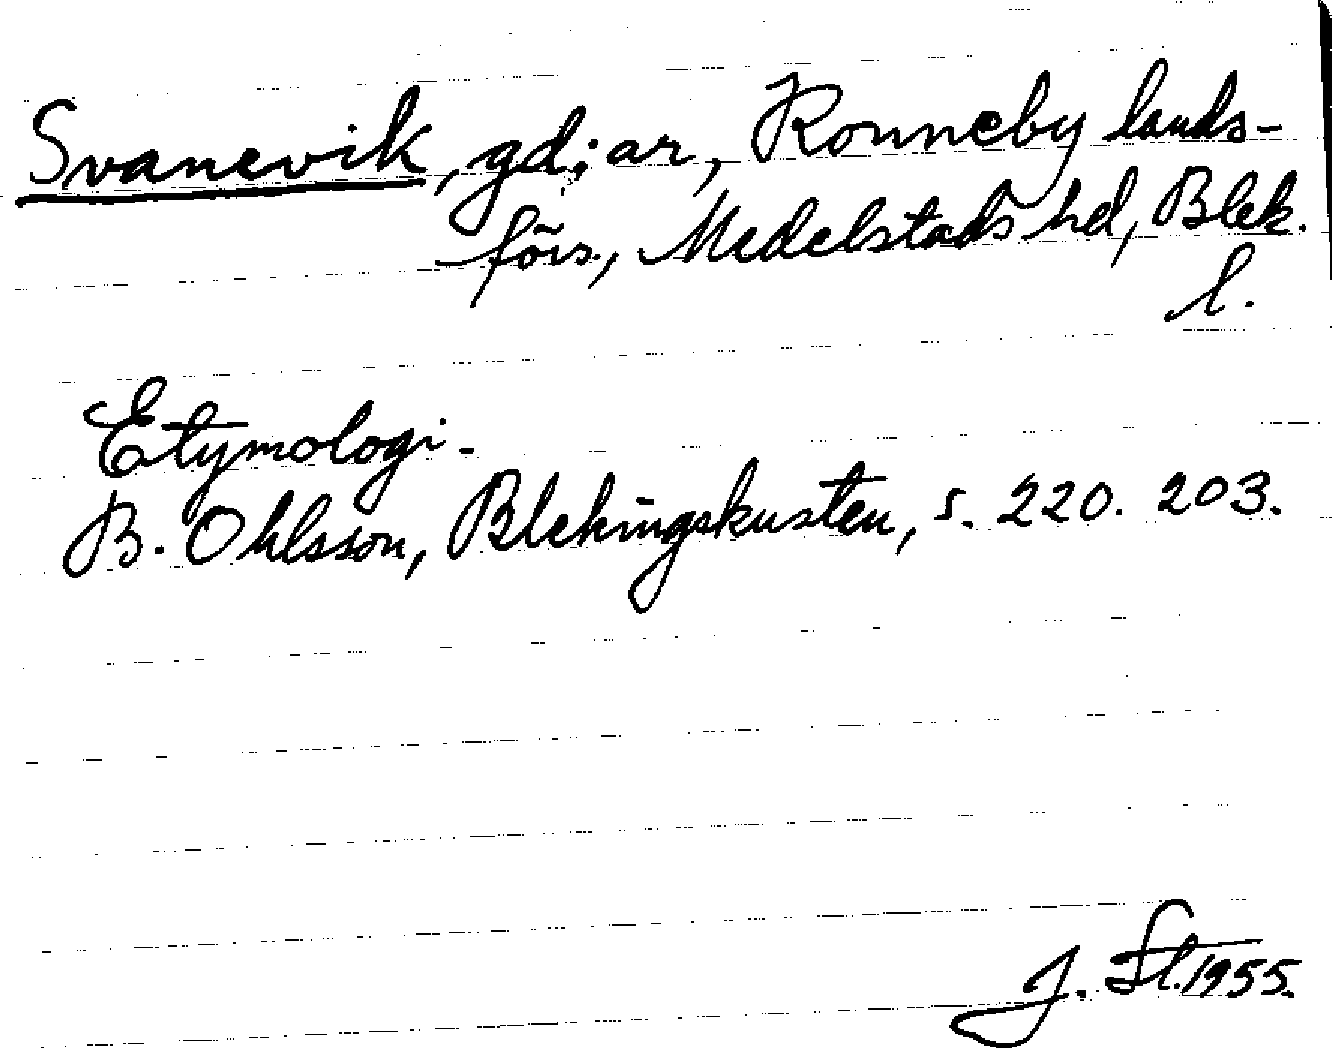 Svanevik, gd; ar, Ronneby lands-
förs., Medelstads hd, Blek.
l.
Etymologi.
B. Ohlsson, Blekingskusten, s. 220. 203.
J. St. 1955.